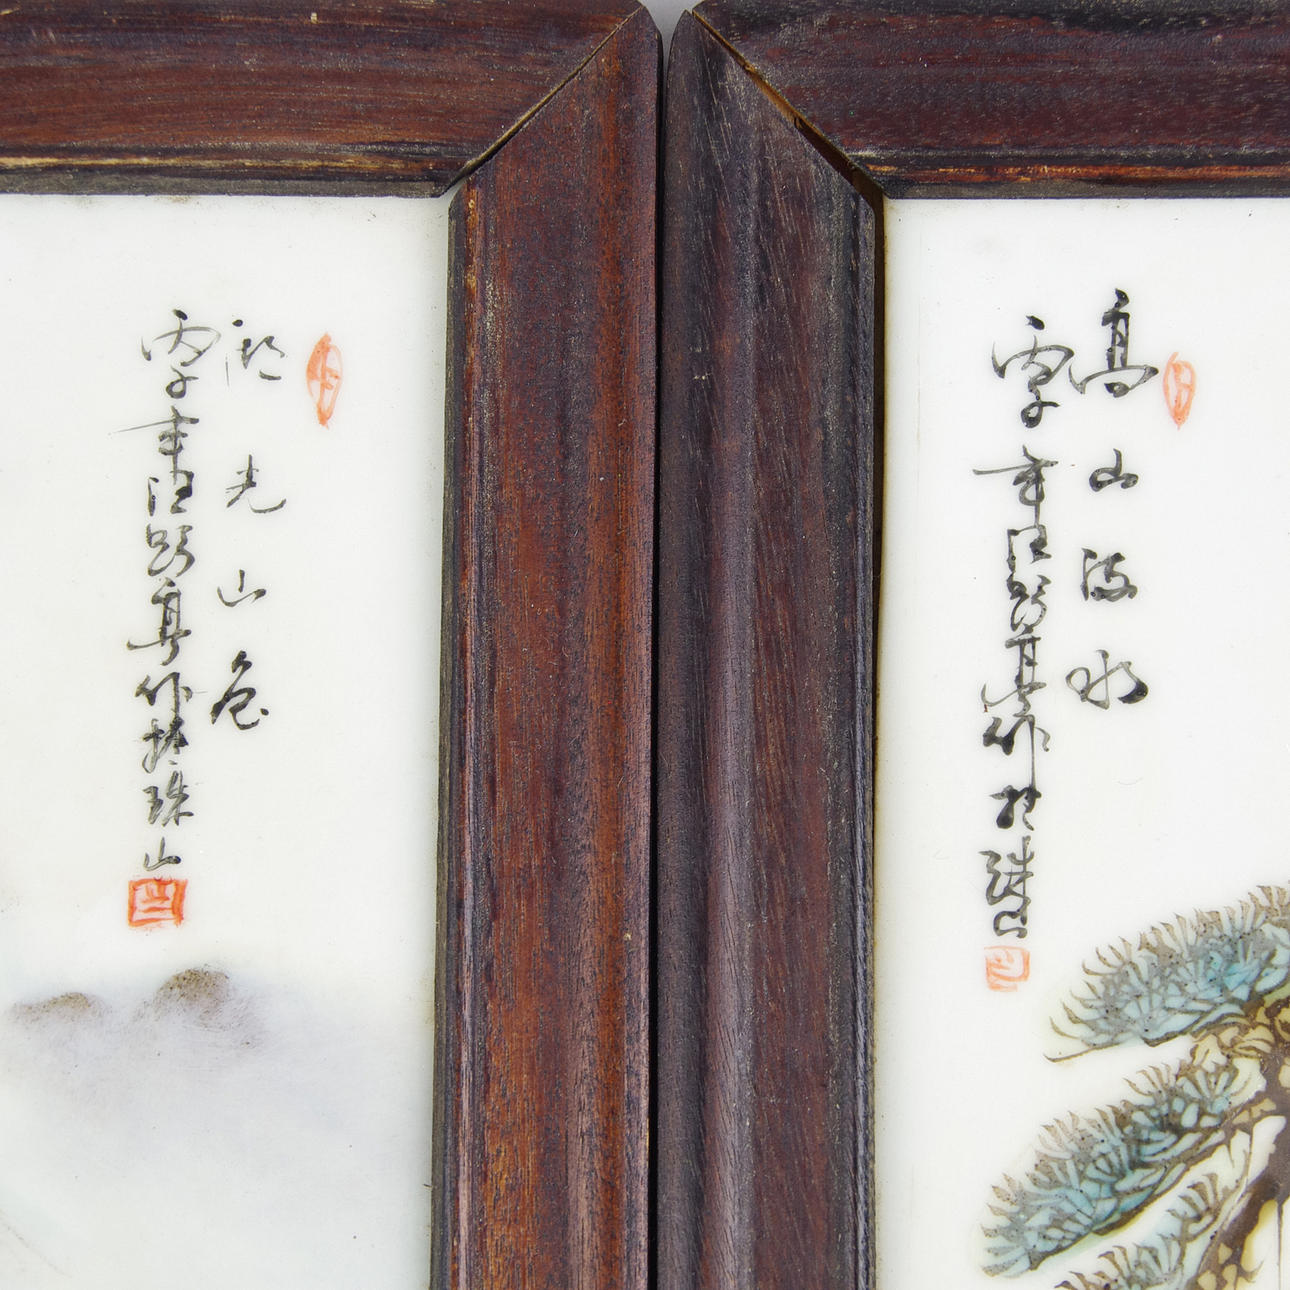 高山流水
丙子年汪野亭作於珠山
湖光山色
丙子年汪野亭作於珠山